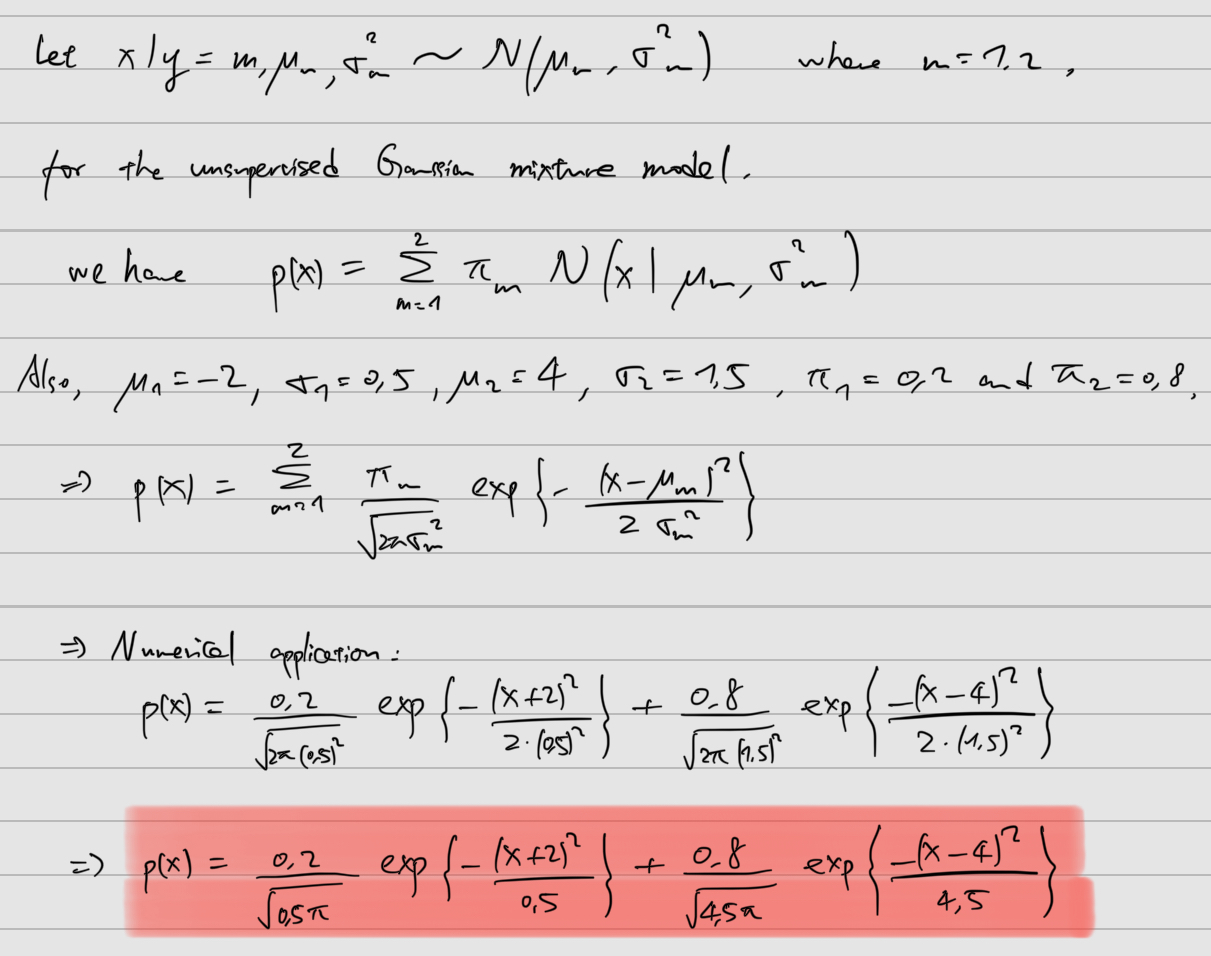 Let x|y = m, μₘ, σₘ² ~ N(μₘ, σₘ²) where m = 1, 2,
for the unsupervised Gaussian mixture model.
we have p(x) = ∑_{m=1}^{2} πₘ N(x | μₘ, σₘ²)
Also, μ₁ = -2, σ₁ = 0,5, μ₂ = 4, σ₂ = 1,5, π₁ = 0,2 and π₂ = 0,8.
⇒ p(x) = ∑_{m=1}^{2} πₘ/√(2πσₘ²) exp{- (x-μₘ)²/(2 σₘ²)}
⇒ Numerical application:
p(x) = 0,2/√(2π(0,5)²) exp{- (x+2)²/(2·(0,5)²)} + 0,8/√(2π(1,5)²) exp{-(x-4)²/(2·(1,5)²)}
⇒ p(x) = 0,2/√(0,5π) exp{- (x+2)²/0,5} + 0,8/√(4,5π) exp{-(x-4)²/4,5}